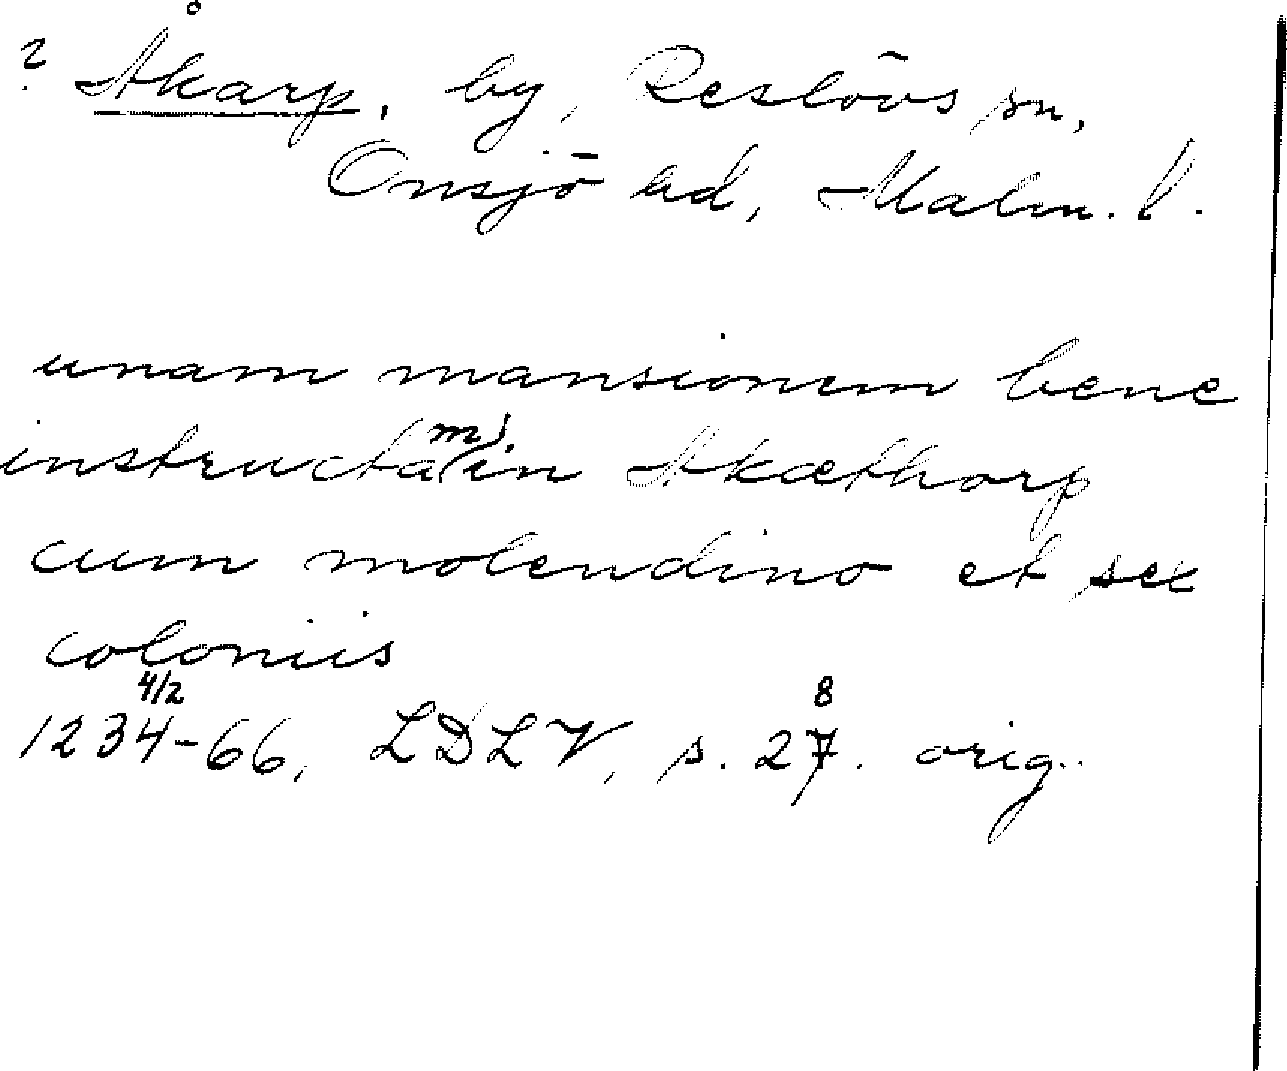 ? Åkarp, by, Reslövs sn,
Onsjö hd, Malm. l.
unam mansionem bene
instructa(m) in Akæthorp
cum molendino et sex
coloniis
4/2 8
1234-66, LDLV, s. 27. orig.